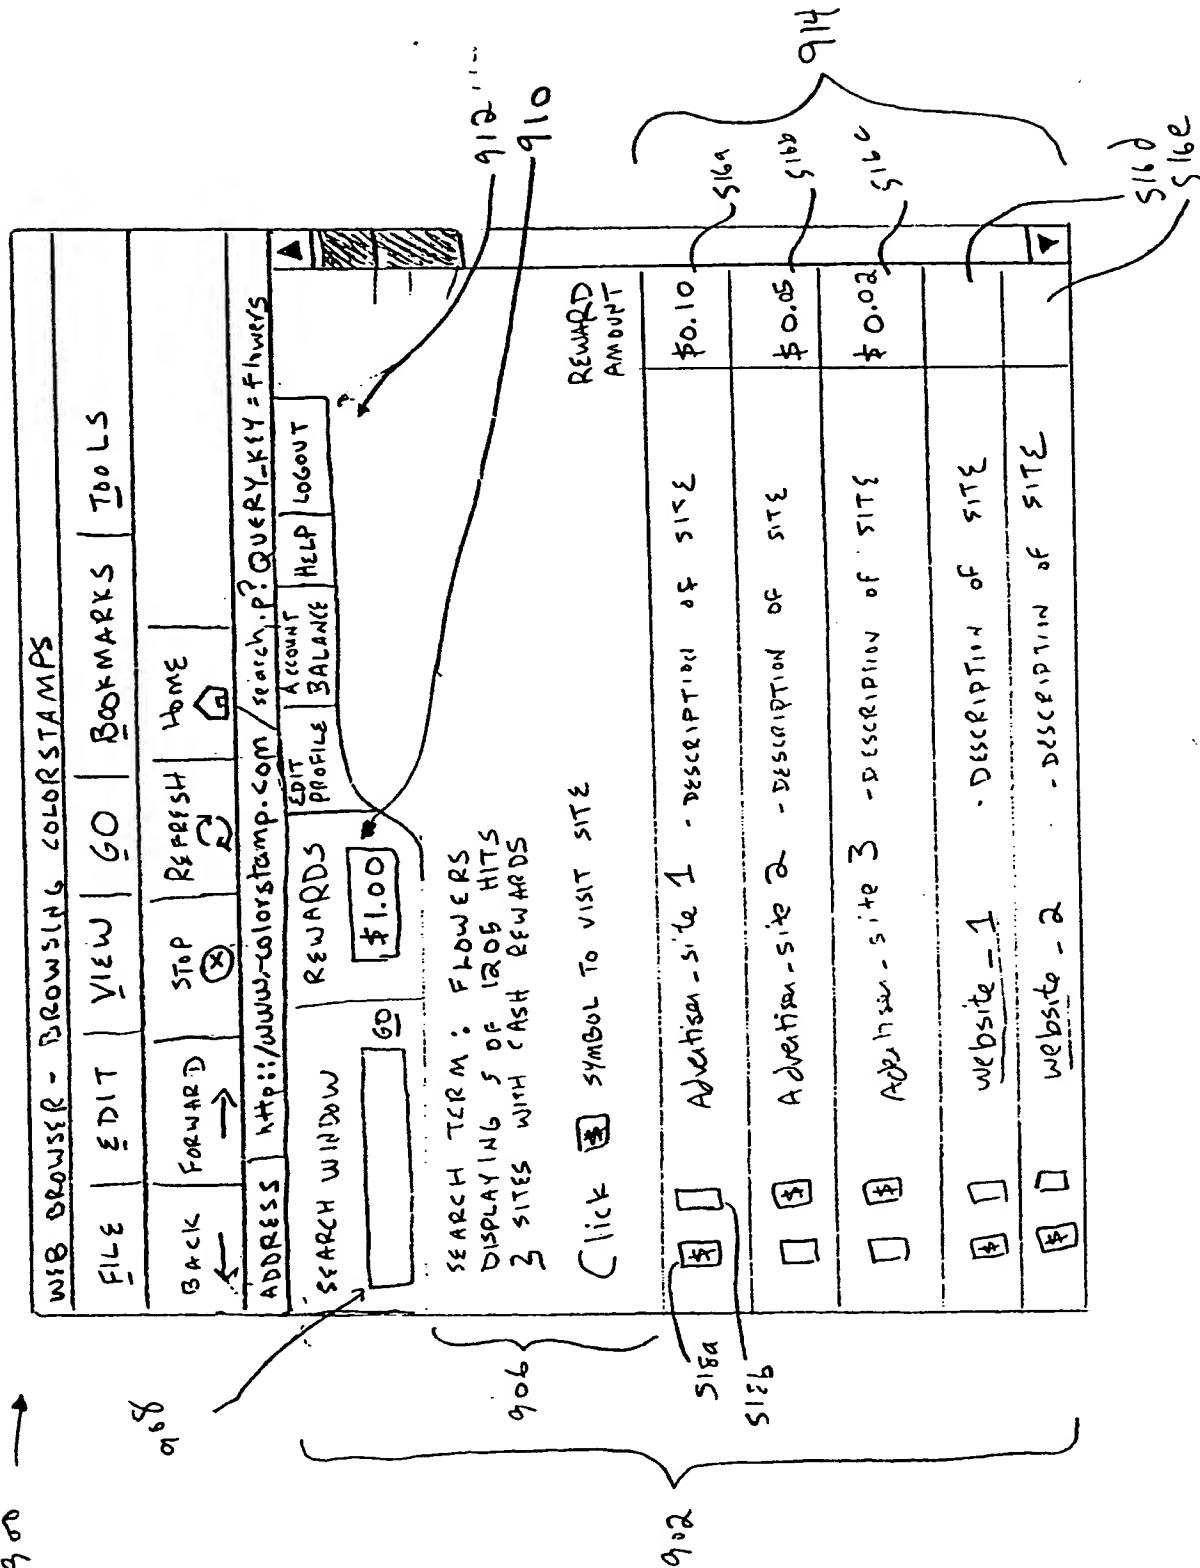 900
WEB BROWSER - BROWSING COLORSTAMPS
FILE EDIT VIEW GO BOOKMARKS TOOLS
BACK FORWARD STOP REFRESH HOME
ADDRESS http://www.colorstamp.com/search.p?QUERY_KEY=Flowers
SEARCH WINDOW REWARDS EDIT PROFILE ACCOUNT BALANCE HELP LOGOUT
GO $1.00
908
912
910
SEARCH TERM: FLOWERS
DISPLAYING 5 OF 1205 HITS
3 SITES WITH CASH REWARDS
906
Click $ SYMBOL TO VISIT SITE
REWARD AMOUNT
$ Advertiser-site 1 - DESCRIPTION OF SITE $0.10
$ Advertiser-site 2 - DESCRIPTION OF SITE $0.05
$ Advertiser-site 3 - DESCRIPTION OF SITE $0.02
$ Website_1 - DESCRIPTION of SITE
$ Website_2 - DESCRIPTION of SITE
518a
518b
516a
516b
516c
516d
516e
914
902